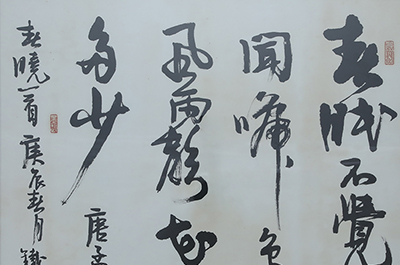 春眠不覺
聞啼鳥
風雨聲花
多少 唐孟
春曉一首 庚辰春月